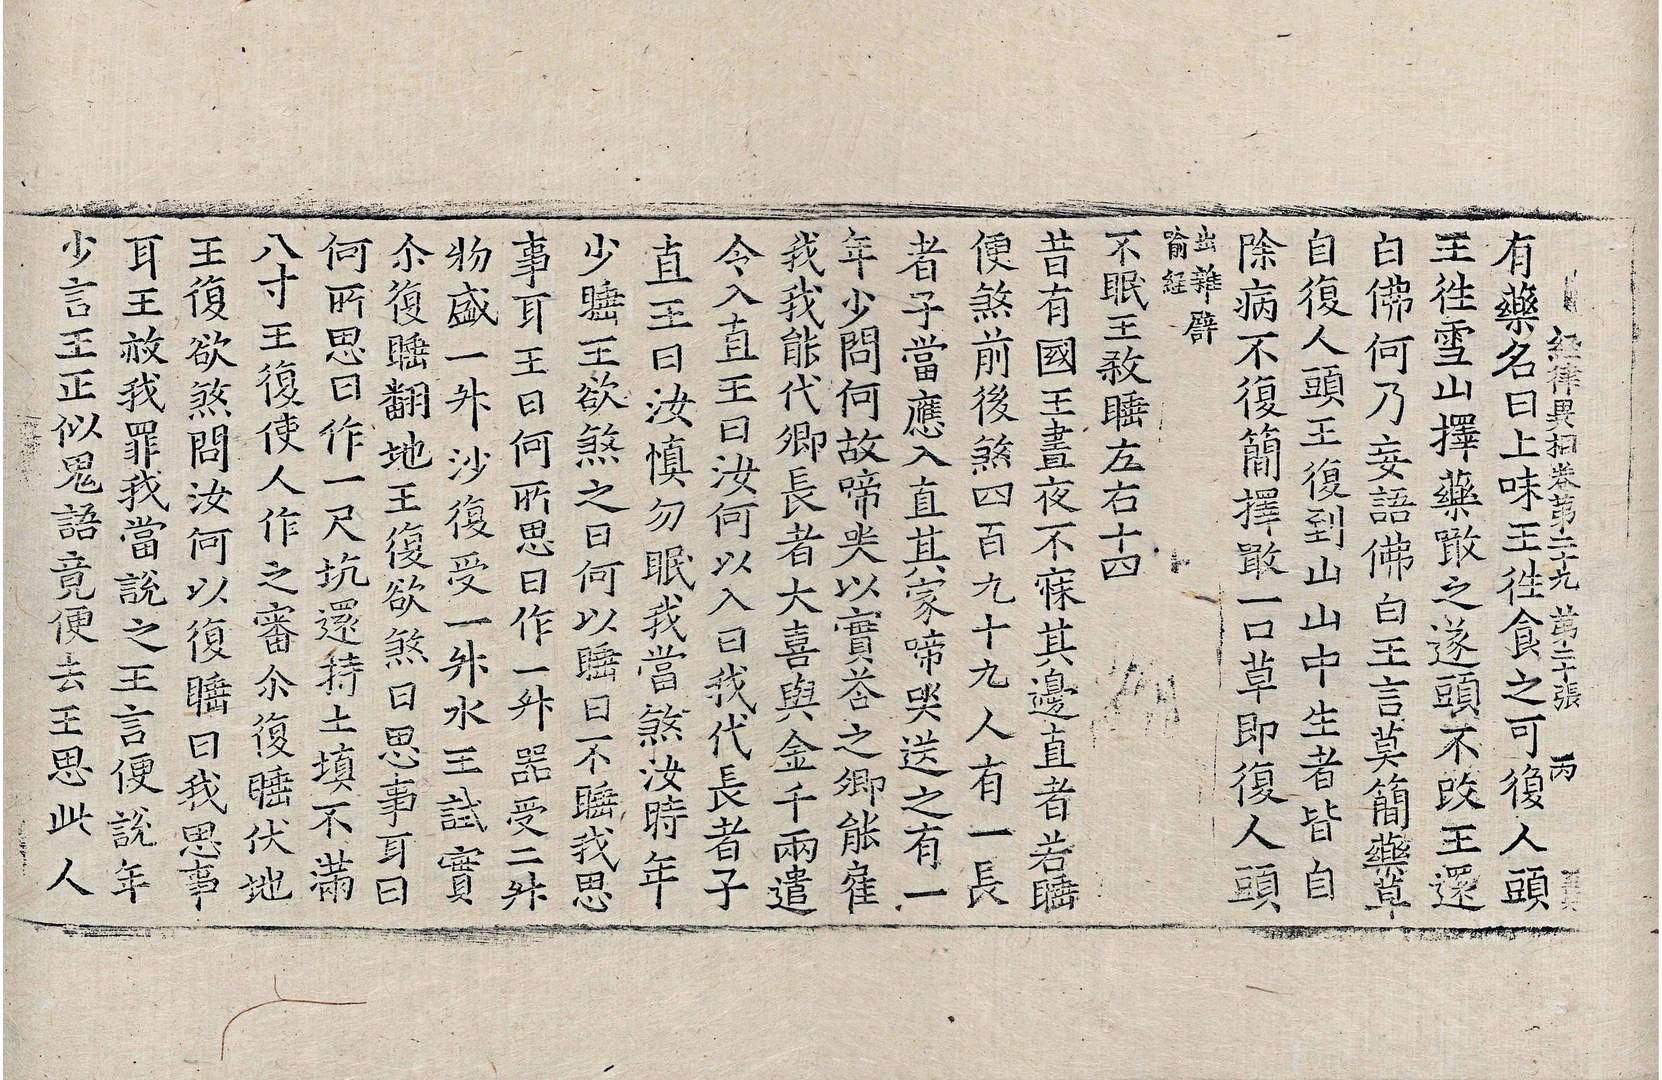 經律異相卷第二十九 第二十張 丙
有藥名曰上味王徃食之可復人頭
王徃雪山擇藥噉之遂頭不改王還
白佛何乃妄語佛白王言莫簡藥草
自復人頭王復到山山中生者皆自
除病不復簡擇噉一口草即復人頭
出雜譬
喻經
不眠王殺睡左右十四
昔有國王晝夜不寐其邊直者若睡
便煞前後煞四百九十九人有一長
者子當應入直其家啼哭送之有一
年少問何故啼哭以實荅之卿能雇
我我能代卿長者大喜與金千兩遣
令入直王曰汝何以入曰我代長者子
直王曰汝慎勿眠我當煞汝時年
少睡王欲煞之曰何以睡曰不睡我思
事耳王曰何所思曰作一升器受二升
物盛一升沙復受一升水王試實
尒復睡翻地王復欲煞曰思事耳曰
何所思曰作一尺坑還持土填不滿
八寸王復使人作之審尒復睡伏地
王復欲煞問汝何以復睡曰我思事
耳王赦我罪我當說之王言便說年
少言王正似鬼語竟便去王思此人